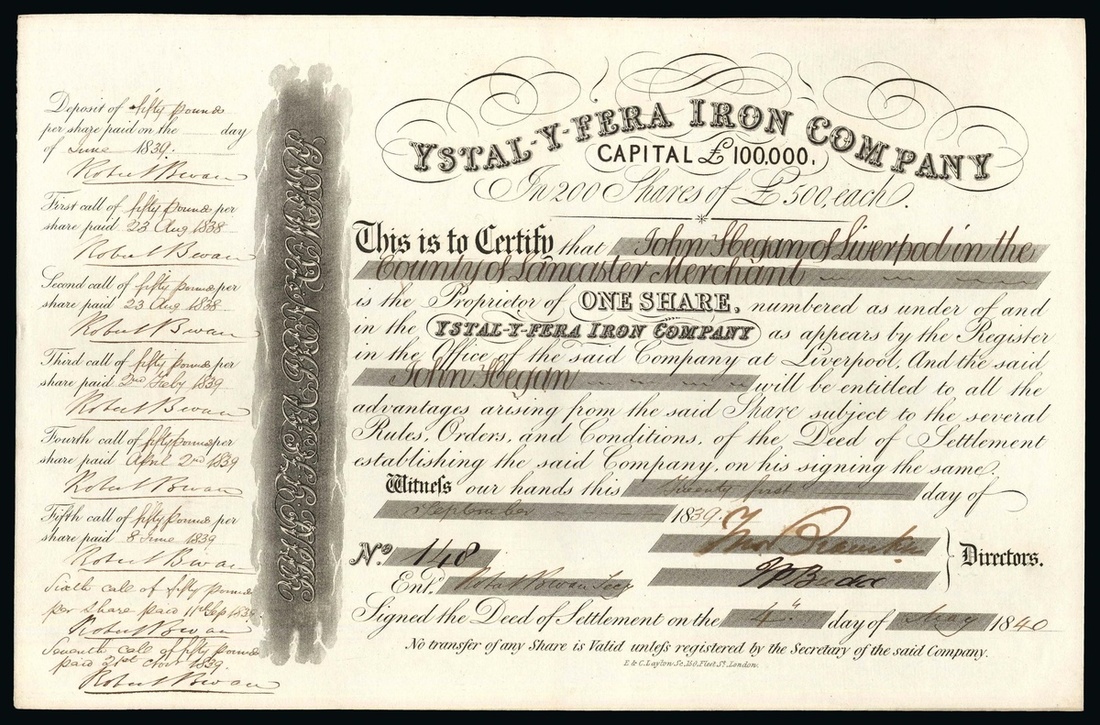 Deposit of fifty pounds
per share paid on the day
of June 1839.
Robert Bevan
First call of fifty pounds per
share paid 23 Aug 1838
Robert Bevan
Second call of fifty pounds per
share paid 23 Aug 1838
Robert Bevan
Third call of fifty pounds per
share paid 2nd Feby 1839
Robert Bevan
Fourth call of fifty pounds per
share paid April 2nd 1839
Robert Bevan
Fifth call of fifty pounds per
share paid 8 June 1839
Robert Bevan
Sixth call of fifty pounds
per share paid 11th Sep 1839
Robert Bevan
Seventh call of fifty pounds
paid 21st Novr 1839.
Robert Bevan
YSTAL-Y-FERA IRON COMPANY
YSTAL-Y-FERA IRON COMPANY
CAPITAL £100,000.
In 200 Shares of £500, each.
This is to Certify that John Hegan of Liverpool in the
County of Lancaster Merchant
is the Proprietor of ONE SHARE, numbered as under of and
in the YSTAL-Y-FERA IRON COMPANY as appears by the Register
in the Office of the said Company at Liverpool, And the said
John Hegan will be entitled to all the
advantages arising from the said Share subject to the several
Rules, Orders, and Conditions, of the Deed of Settlement
establishing the said Company, on his signing the same.
Witness our hands this Twenty first day of
September 1839.
No. 148
Directors.
Entd. Robert Bevan Secy
Signed the Deed of Settlement on the 4th day of May 1840
No transfer of any Share is Valid unless registered by the Secretary of the said Company.
E & C. Layton Sc. 150, Fleet St. London.